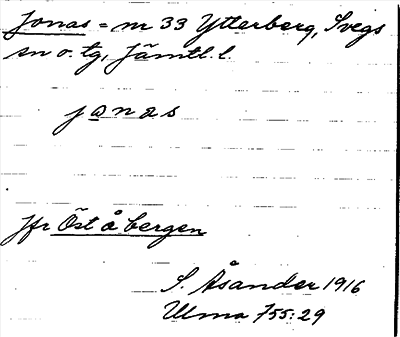 Jonas = nr 33 Ytterberg, Svegs
sn o. tg, Jämtl. l.
janas
Jfr Öståbergen
S. Åsander 1916
Ulma 755:29